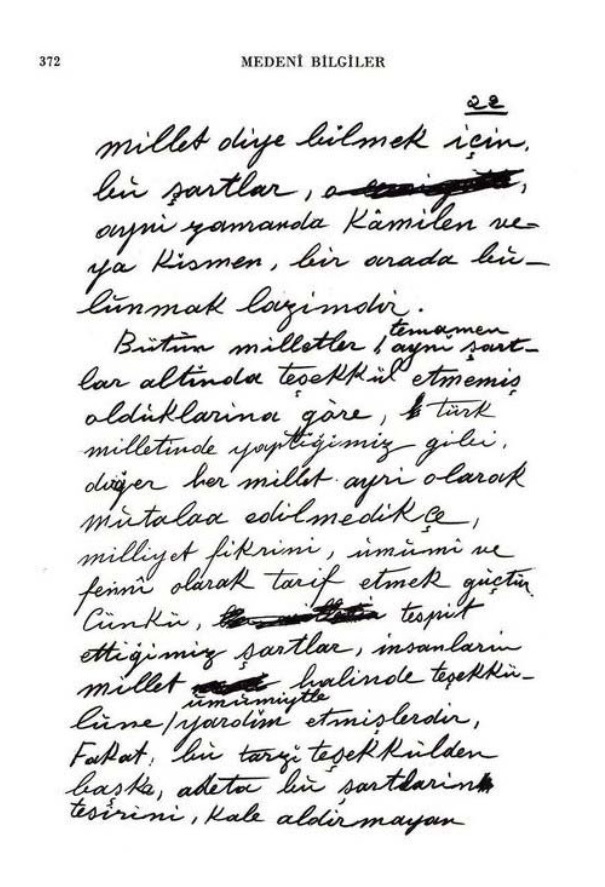 372
MEDENÎ BİLGİLER
22
millet diye bilmek için,
bu şartlar,
ayni zamanda Kâmilen ve-
ya Kısmen, bir arada bu-
lunmak lazımdır.
temamen
Bütün milletler, ayni şart-
lar altında teşekkül etmemiş
olduklarına göre, türk
milletinde yaptığımız gibi,
diğer her millet ayrı olarak
mütalaa edilmedikçe,
milliyet fikrini, umumî ve
fennî olarak tarif etmek güçtür.
Çünkü, tespit
ettiğimiz şartlar, insanların
millet halinde teşekkü-
umumiyetle
lüne yardım etmişlerdir,
Fakat, bu tarzı teşekkülden
başka, adeta bu şartların
tesirini, kale aldırmayan